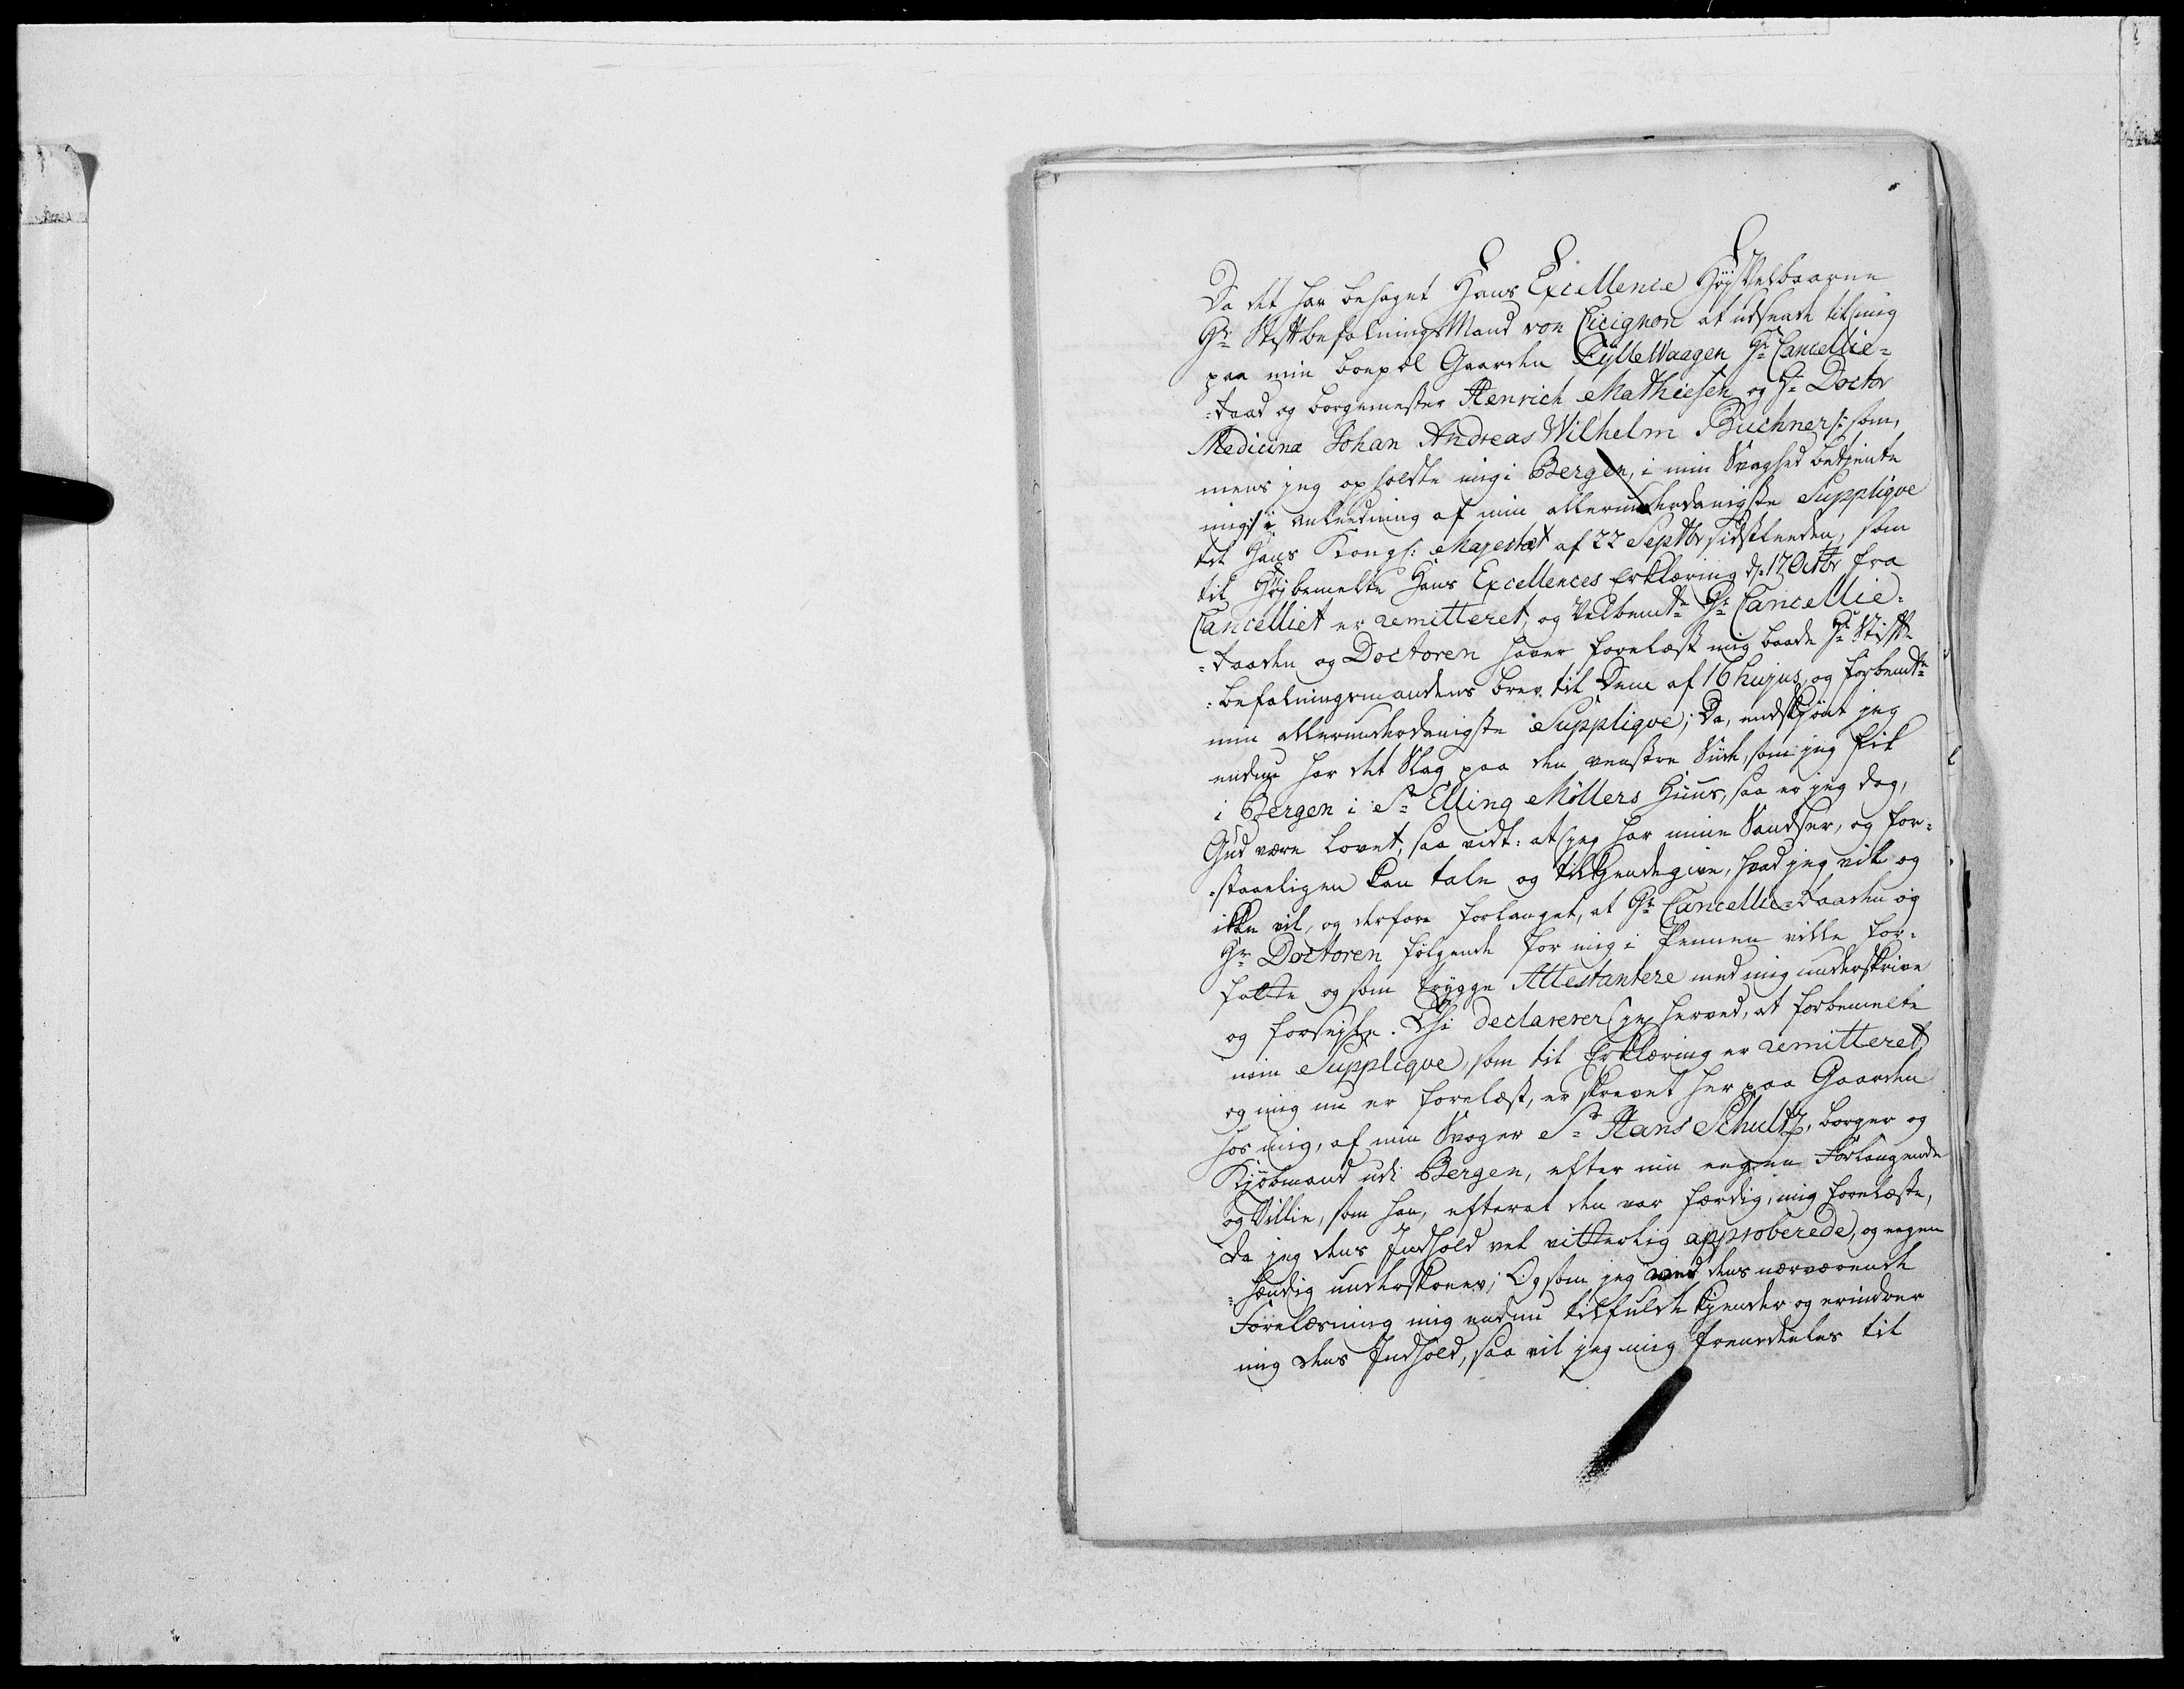 Da det har behaget Hans Excellence Høy Velbaarne
Hr: StiftbefalningsMand von Cicignon at udsende til mig
paa min boepæl Gaarden FylleWaagen Hr: Cancellie=
=Raad og borgemester Henrich Mathiesen og Hr: Doctor
Medicinæ Johan Andreas Wilhelm Buchner /: som,
mens jeg opholdte mig i Bergen, i min Svaghed betjente
mig :/ i anleedning af min allerunderdanigste Supplique
til Hans Kongl: Majestæt af 22 Septbr sidstleeden, som
til Høybemelte Hans Excellences Erklæring d: 17 Octbr fra
Cancelliet er remitteret, og Velbemte Hr: Cancellie=
=Raaden og Doctoren haver forelæst mig baade Hr: Stift
=befalningsmandens brev til Dem af 16 hujus, og forbemte
min allerunderdanigste Supplique; Da, endskjønt jeg
endnu har det Slag paa den venstre Siide, som jeg fik
i Bergen i Sr Elling Møllers Huus, saa er jeg dog,
Gud være lovet, saa vidt: at jeg har mine Sandser, og for=
=staaeligen kan tale og tilkjendegive, hvad jeg vil og
ikke vil, og derfore forlanget, at Hr: Cancellie=Raaden og
Hr: Doctoren følgende for mig i Pennen ville for=
fatte og som trygge Attestantere med mig underskrive
og forseigle. Thi declarerer jeg herved, at forbemelte
min Supplique, som til Erklæring er remitteret,
og mig nu er forelæst, er skrevet her paa Gaarden
hos mig, af min Svoger Sr Hans Schultz, borger og
Kjøbmand udi Bergen, efter min eegen Forlangende
og Villie, som han, efterat den var færdig, mig forelæste,
da jeg dens Indhold vel vitterlig approberede, og eegen
=hændig underskrev; Og som jeg ved dens nærværende
Forelæsning mig endnu tilfulde kjender og erindrer
mig dens Indhold, saa vil jeg mig fremdeeles til